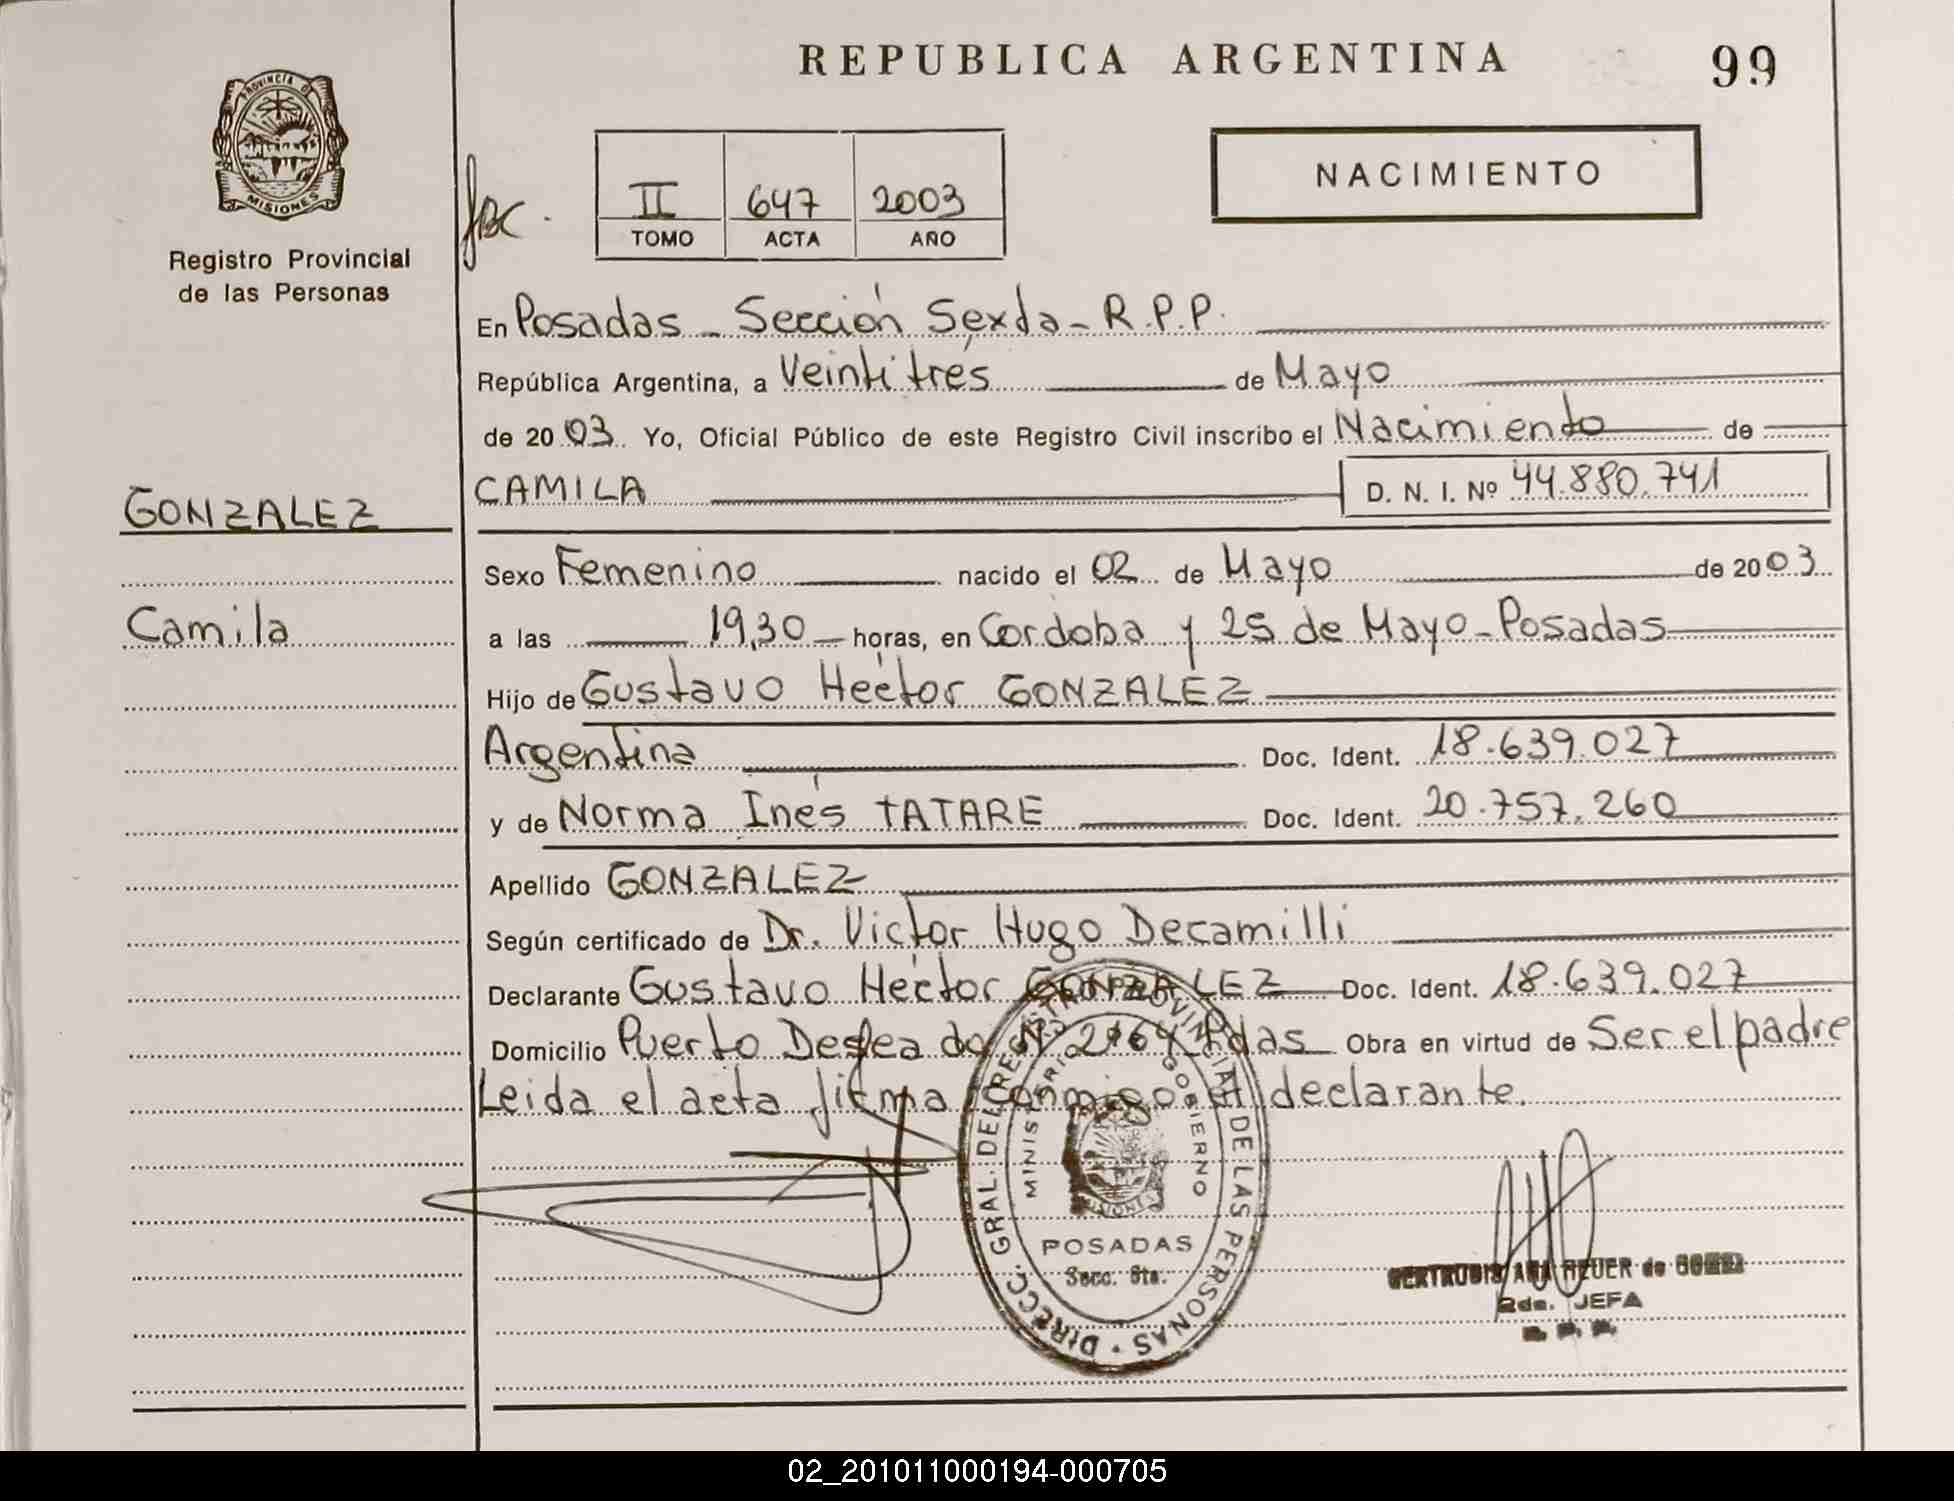 REPUBLICA ARGENTINA
99
PROVINCIA DE
MISIONES
Registro Provincial
de las Personas
NACIMIENTO
II 647 2003
TOMO ACTA AÑO
En Posadas - Sección Sexta - R.P.P.
República Argentina, a Veintitrés de Mayo
de 2003 Yo, Oficial Público de este Registro Civil inscribo el Nacimiento de
GONZALEZ
CAMILA D. N. I. Nº 44.880.741
Sexo Femenino nacido el 02 de Mayo de 2003
Camila
a las 19,30 horas, en Cordoba y 25 de Mayo - Posadas
Hijo de Gustavo Héctor GONZALEZ
Argentina Doc. Ident. 18.639.027
y de Norma Inés TATARE Doc. Ident. 20.757.260
Apellido GONZALEZ
Según certificado de Dr. Victor Hugo Decamilli
Declarante Gustavo Héctor GONZALEZ Doc. Ident. 18.639.027
Domicilio Puerto Deseado Nº 2164 Pdas Obra en virtud de Ser el padre
Leida el acta firma conmigo el declarante.
DIRECC. GRAL. DEL REGISTRO PROVINCIAL DE LAS PERSONAS
MINISTERIO GOBIERNO
MISIONES
POSADAS
Secc. 6ta.
GERTRUDIS ANA HEUER de
2da. JEFA
R. P. P.
02_201011000194-000705